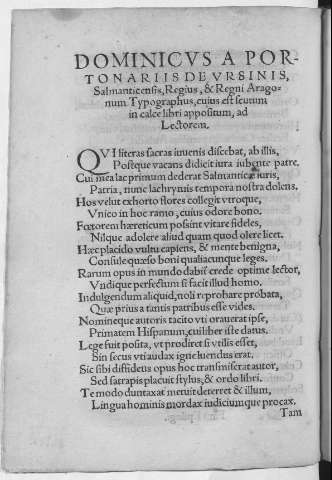 DOMINICVS A POR-
TONARIIS DE VRSINIS,
Salmanticensis, Regius, & Regni Arago-
num Typographus, cuius est scutum
in calce libri appositum, ad
Lectorem.
QVI literas sacras iuuenis discebat, ab illis,
Postque vacans didicit iura iubente patre.
Cui mea lac primum dederat Salmantica iuris,
Patria, nunc lachrymis tempora nostra dolens.
Hos velut exhorto flores collegit vtroque,
Vnico in hoc ramo, cuius odore bono.
Fœtorem hæreticum possint vitare fideles,
Nilque adolere aliud quam quod olere licet.
Hæc placido vultu capiens, & mente benigna,
Consule quæso boni qualiacunque leges.
Rarum opus in mundo dabis crede optime lector,
Vndique perfectum si facit illud homo.
Indulgendum aliquid, noli reprobare probata,
Quæ prius a tantis patribus esse vides.
Nomineque autoris tacito vti orauerat ipse,
Primatem Hispanum, cui liber iste datus.
Lege fuit posita, vt prodiret si vtilis esset,
Sin secus vti audax igne luendus erat.
Sic sibi diffidens opus hoc transmiserat autor,
Sed satrapis placuit stylus, & ordo libri.
Te modo duntaxat metuit deterret & illum,
Lingua hominis mordax iudiciumque procax.
Tam